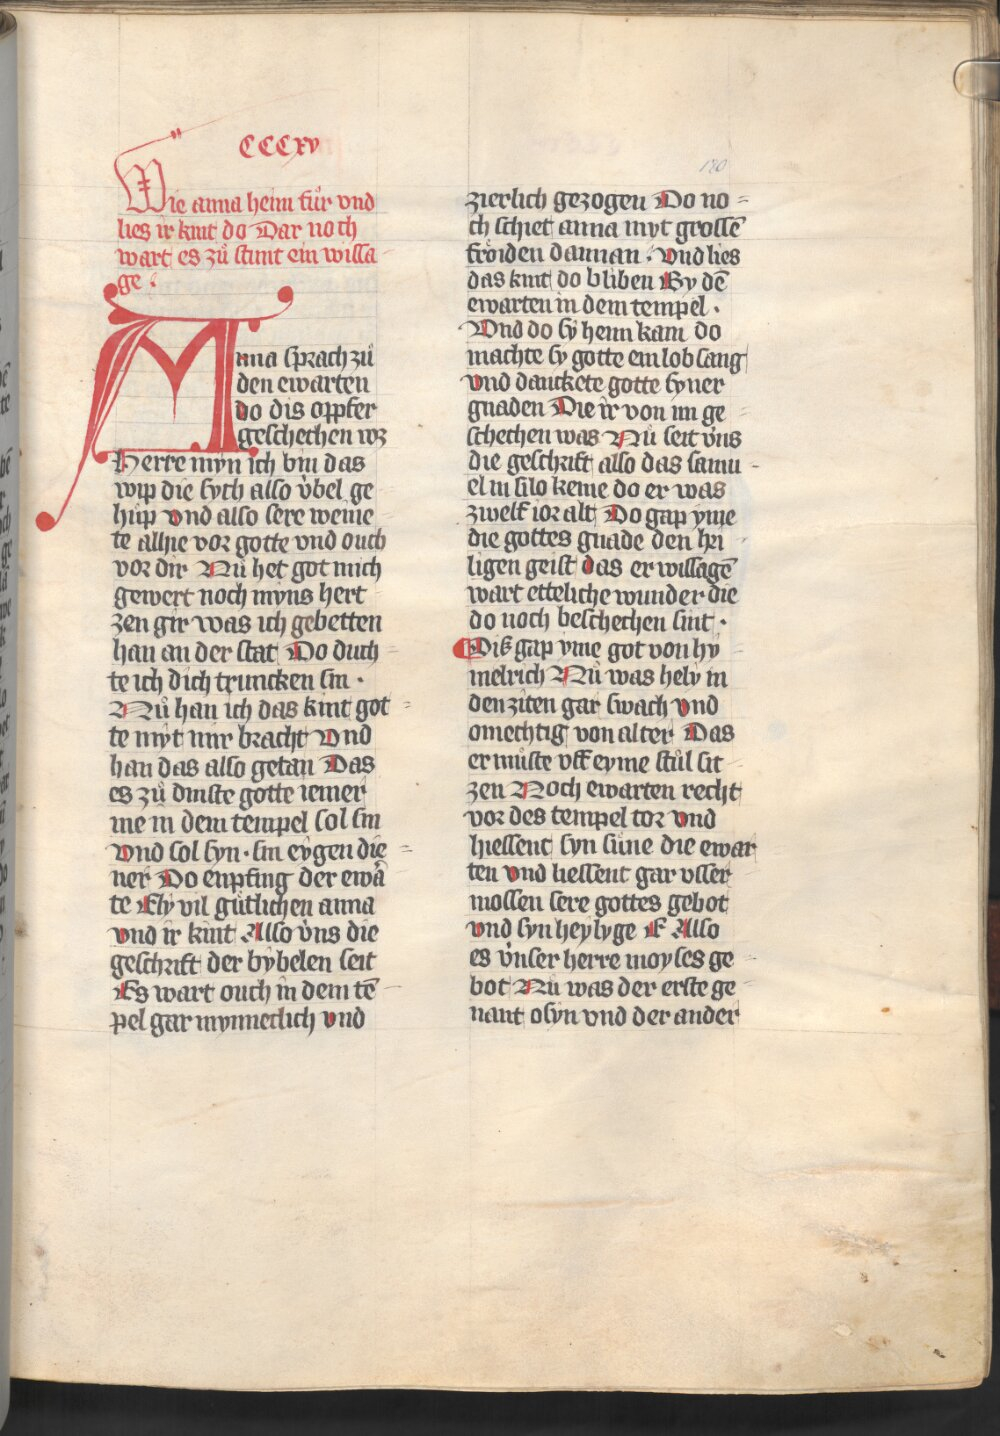 CCCxv
180
Wie anna heim fuͦr vnd
lies ir kint do Dar noch
wart es zuͦ stunt ein wissa
ge .
Anna sprach zuͦ
den ewarten
do dis oppfer
geschechen wz
Herre myn ich bin das
wip die sych also vͤbel ge
huͤp vnd also sere weine
te alhie vor gotte vnd ouch
vor dir Nuͦ het got mich
gewert noch myns hert
zen gir was ich gebetten
han an der stat Do duch
te ich dich truncken sin .
Nuͦ han ich das kint got
te myt mir bracht Vnd
han das also getan Das
es zuͦ dinste gotte iemer
me in dem tempel sol sin
Vnd sol syn . sin eygen die
ner Do enpfing der ewaͣ
te Ely vil guͤtlichen anna
vnd ir kint Also vͤns die
geschrift der bybelen seit
Es wart ouch in dem tē
pel gar mynneclich vnd
zierlich gezogen Do no
ch schiet anna myt grossē
froͤiden dannan . Vnd lies
das kint do bliben By dē
ewarten in dem tempel .
Vnd do sy heim kam do
machte sy gotte ein lob sang
vnd danckete gotte syner
gnaden Die ir von im ge
schechen was Nuͦ seit vͤns
die geschrift also das samu
el in silo keme do er was
zwelf ior alt Do gap yme
die gottes gnade den hei
ligen geist das er wissagē
wart etteliche wunder die
do noch beschechen sint .
Dis gap yme got von hy
melrich Nuͦ was hely in
den ziten gar swach vnd
omechtig von alter Das
er muͦste vff eyme stuͦl sit
zen Noch ewarten recht
vor des tempel tor vnd
hiessent syn suͤne die ewar
ten vnd liessent gar vsser
mossen sere gottes gebot
vnd syn heylyge E Also
es vͤnser herre moyses ge
bot Nuͦ was der erste ge
nant osyn vnd der ander